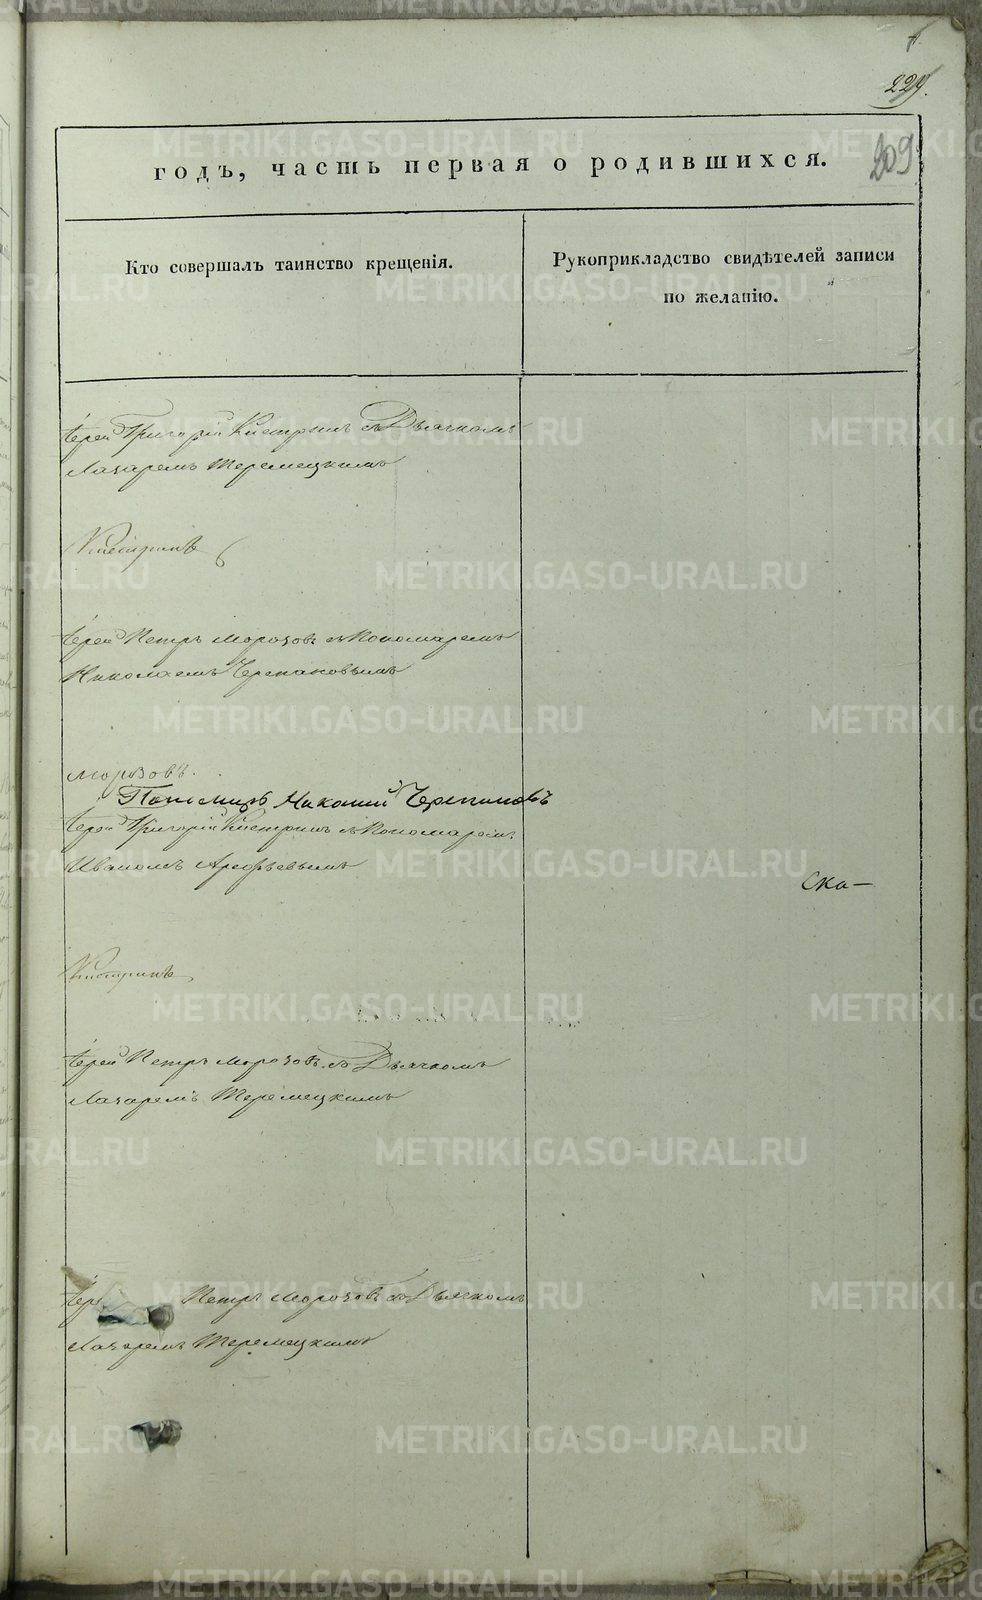 229.
209
годъ, часть первая о родившихся.
Кто совершалъ таинство крещенія.
Рукоприкладство свидѣтелей записи
по желанію.
Іерей Григорій Кистринъ съ Дьячкомъ
Лазаремъ Теремецкимъ
Кистринъ
Іерей Петръ Морозовъ съ Пономаремъ
Николаемъ Черепановымъ
Морозовъ.
Пономарь Николай Черепановъ
Іерей Григорій Кистринъ съ Пономаремъ
Иваномъ Арефьевымъ
Ска—
Кистринъ
Іерей Петръ Морозовъ съ Дьячкомъ
Лазаремъ Теремецкимъ
Іере Петръ Морозовъ съ Дьячкомъ
Лазаремъ Теремецкимъ
METRIKI.GASO-URAL.RU